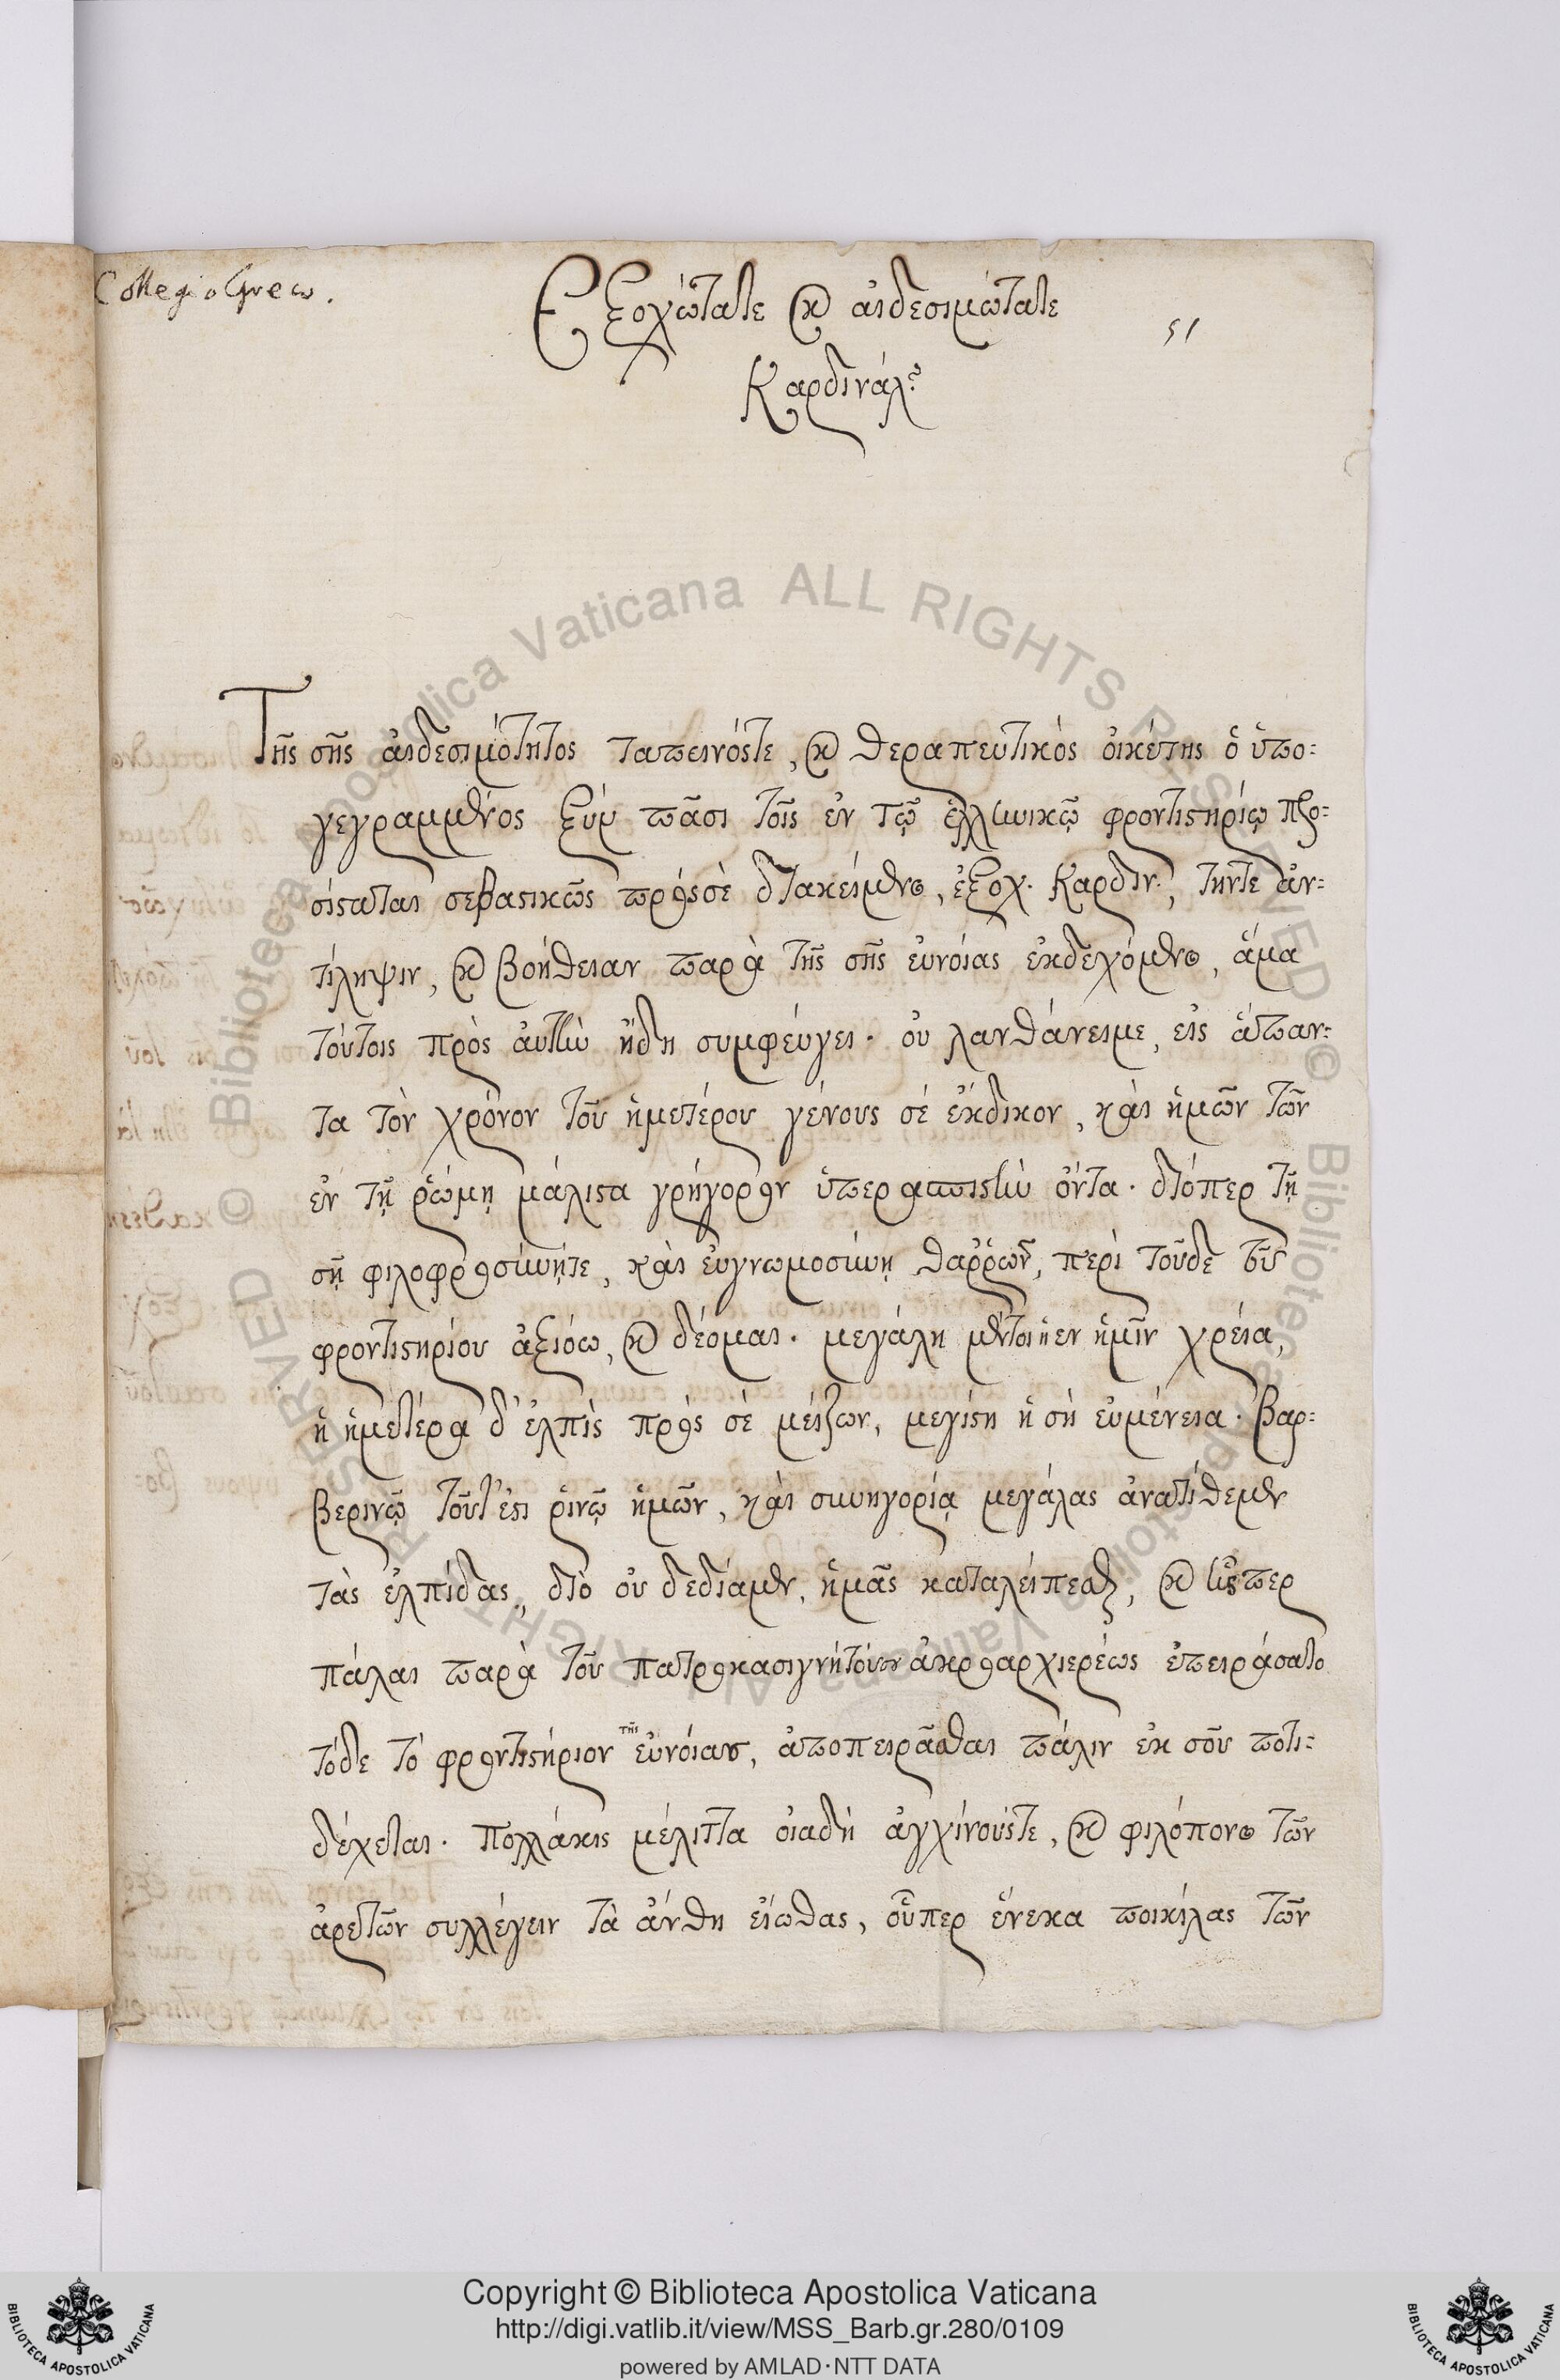 Collegio Greco.
Ἐξοχώτατε καὶ αἰδεσιμώτατε
51
Καρδινάλε
Τῆς σῆς αἰδεσιμότητος ταπεινόςτε, καὶ θεραπευτικὸς οἰκέτης ὁ ὑπο=
γεγραμμένος ξὺν πᾶσι τοῖς ἐν τῷ ἑλληνικῷ φροντιστηρίῳ προ=
σίσταται σεβαστικῶς πρόςσὲ διακείμενος, ἐξοχ. Καρδιν., τήντε ἀν=
τίληψιν, καὶ βοήθειαν παρὰ τῆς σῆς εὐνοίας ἐκδεχόμενος, ἅμα
τούτοις πρὸς ἀυτὴν ἤδη συμφεύγει. οὐ λανθάνειμε, εἰς ἅπαν=
τα τὸν χρόνον τοῦ ἡμετέρου γένους σέ ἔκδικον, καὶ ἡμῶν τῶν
ἐν τῇ ῥώμῃ μάλιστα γρήγορον ὑπερασπιστὴν ὄντα. διόπερ τῇ
σῇ φιλοφροσύνῃτε, καὶ εὐγνωμοσύνῃ θαῤῥῶν, περὶ τοῦδε τοῦ
φροντιστηρίου ἀξιόω, καὶ δέομαι. μεγάλη μέντοι ἡ ἐν ἡμῖν χρεία,
ἡ ἡμετέρα δ' ἐλπὶς πρὸς σὲ μείζων, μεγίστη ἡ σὴ εὐμένεια. Βαρ=
βερινῷ τοῦτ' ἔστι ῥινῷ ἡμῶν, καὶ συνηγορίᾳ μεγάλας ἀνατίθεμεν
τὰς ἐλπίδας, διὸ οὐ δεδίαμεν, ἡμᾶς καταλείπεσθαι, καὶ ἧςπερ
πάλαι παρὰ τοῦ πατροκασιγνήτου ἀκροαρχιερέως ἐπειράσατο
τόδε τὸ φροντιστήριον τῆς εὐνοίας, ἀποπειρᾶσθαι πάλιν ἐκ σοῦ ποτι=
δέχεται. Πολλάκις μέλιττα οἱαδὴ ἀγχίνουςτε, καὶ φιλόπονος τῶν
ἀρετῶν συλλέγειν τὰ ἄνθη εἴωθας, οὗπερ ἕνεκα ποικίλας τῶν
Copyright © Biblioteca Apostolica Vaticana
http://digi.vatlib.it/view/MSS_Barb.gr.280/0109
powered by AMLAD·NTT DATA